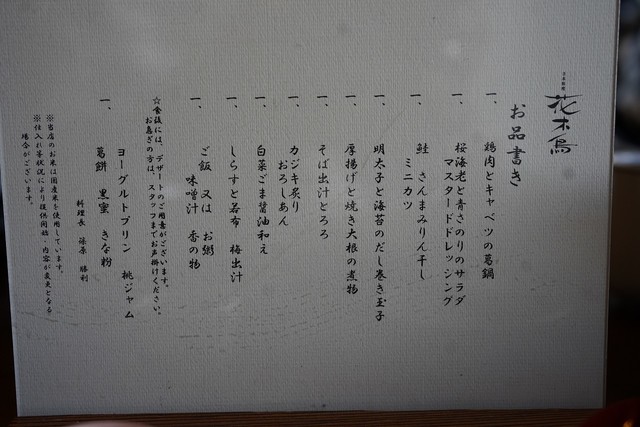 花木鳥
お品書き
一、鶏肉とキャベツの葛鍋
一、桜海老と青さのりのサラダ
マスタードドレッシング
一、鮭 さんまみりん干し
ミニカツ
一、明太子と海苔のだし巻き玉子
一、厚揚げと焼き大根の煮物
一、そば出汁とろろ
一、カジキ炙り
おろしあん
一、白菜ごま醤油和え
一、しらすと若布 梅出汁
一、ご飯 又は お粥
味噌汁 香の物
☆食後には、デザートのご用意がございます。
お急ぎの方は、スタッフまでお声掛けください。
一、ヨーグルトプリン 桃ジャム
葛餅 黒蜜 きな粉
料理長 篠原 勝利
※当店のお米は国産米を使用しています。
※仕入れ等状況により提供開始・内容が変更となる
場合がございます。